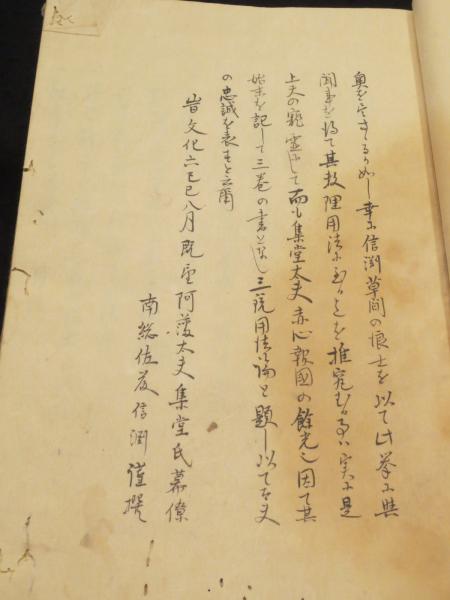 奥をきするか如し幸に信渕草間の恨士を以て此挙に与
聞事を得て其技理用法に至るまでを推窮むるハ実に是
上天の寵霊にして而も集堂太夫赤心報国の餘光也因て其
始末を記して三巻の書となし三銃用法論と題し以て太夫
の忠誠を表すと云爾
旹文化六己巳八月既望阿波太夫集堂氏幕僚
南総佐藤信渕謹撰